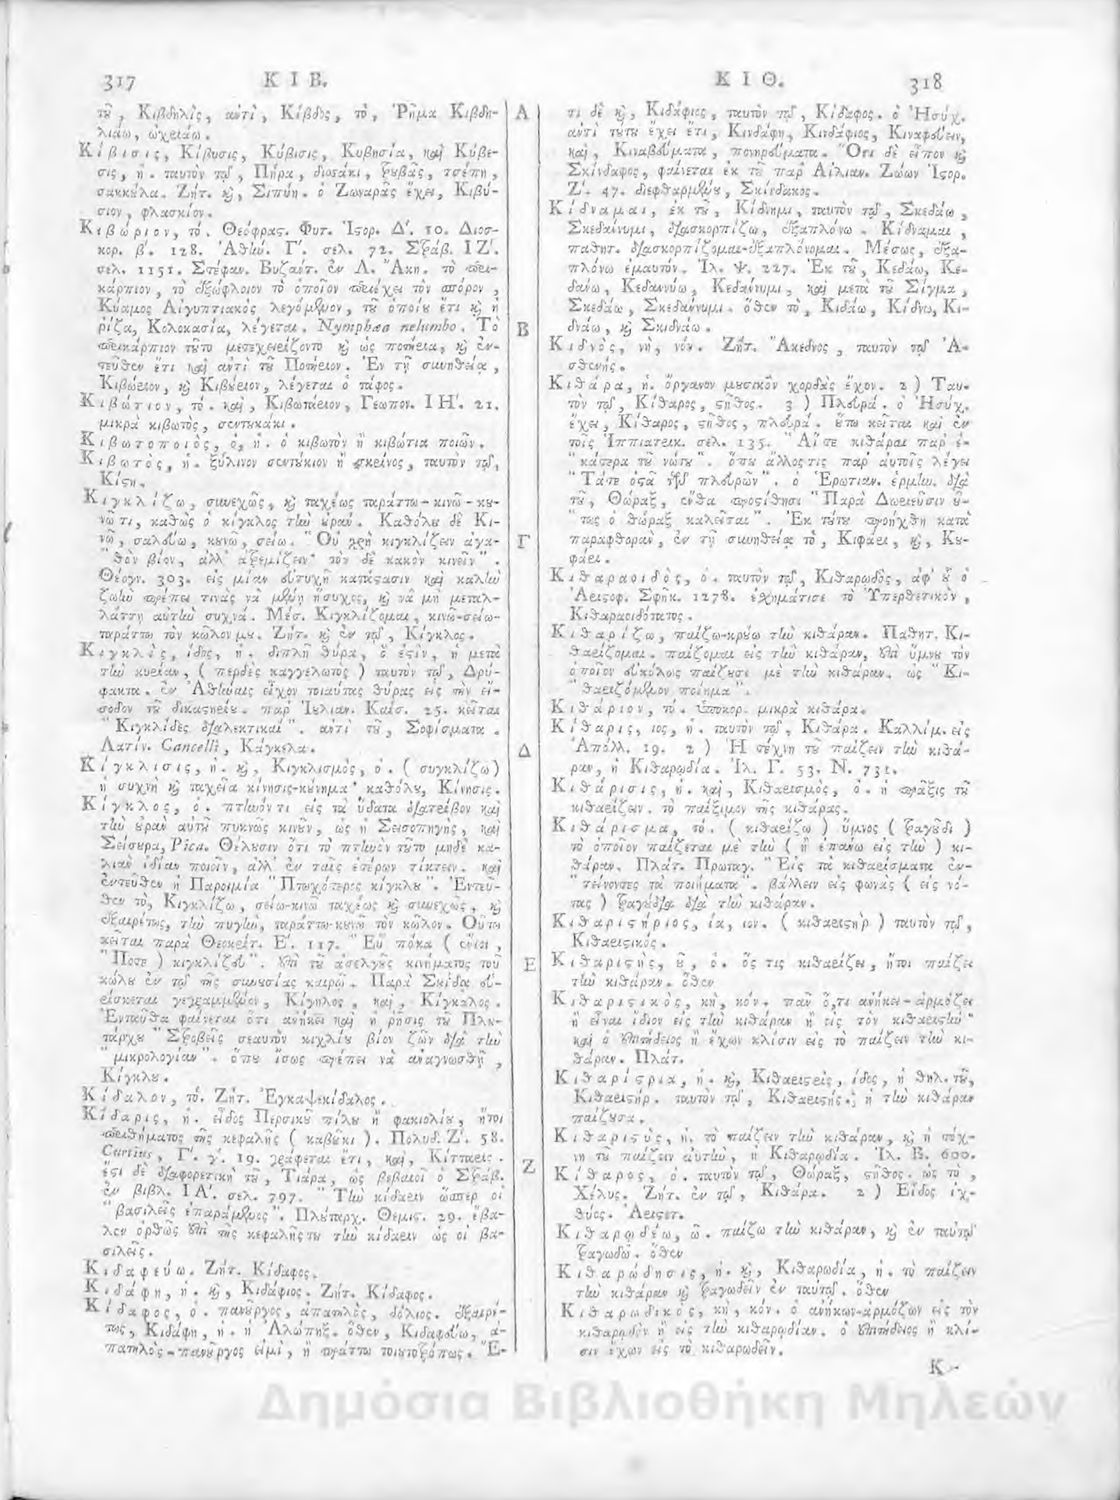 317 Κ Ι Β.
τοῦ, Κιβδηλὶς, ἀντὶ, Κίβδος, τὸ, Ῥῆμα Κιβδη-
λιάω, ὠχριάω.
Κίβισις, Κίβυσις, Κύβισις, Κυβησία, καὶ Κύβε-
σις, ἡ. ταυτὸν τῷ, Πήρα, δισάκι, τρυβᾶς, τσέπη,
σακκούλα. Ζήτ. καὶ, Σιπύη. ὁ Ζωναρᾶς ἔχει, Κιβύ-
σιον, φλασκίον.
Κιβώριον, τό. Θεόφρας. Φυτ. Ἱςορ. Δ'. 10. Διοσ-
κορ. β'. 128. Ἀθήν. Γ'. σελ. 72. Στράβ. ΙΖ'.
σελ. 1151. Στέφαν. Βυζαντ. ἐν Λ. Ἄκη. τὸ περι-
κάρπιον, τὸ ἐξώφλοιον τὸ ὁποῖον περιέχει τὸν σπόρον,
Κύαμος Αἰγυπτιακὸς λεγόμενον, τοῦ ὁποίου ἔτι καὶ ἡ
ῥίζα, Κολοκασία, λέγεται. Nymphæa nelumbo. Τὸ
περικάρπιον τοῦτο μετεχειρίζοντο καὶ ὡς ποτήρια, καὶ ἐν-
τεῦθεν ἔτι καὶ ἀντὶ τοῦ Ποτήριον. Ἐν τῇ συνηθείᾳ,
Κιβώριον, καὶ Κιβούριον, λέγεται ὁ τάφος.
Κιβώτιον, τό. καὶ, Κιβωτάριον, Γεωπον. ΙΗ'. 21.
μικρὰ κιβωτὸς, σεντουκάκι.
Κιβωτοποιὸς, ὁ, ἡ. ὁ κιβωτὸν ἢ κιβώτια ποιῶν.
Κιβωτὸς, ἡ. ξύλινον σεντούκιον ἢ σκρίνος, ταυτὸν τῷ,
Κίςη.
Κιγκλίζω, συνεχῶς, καὶ ταχέως ταράττω-κινῶ-κου-
νῶ τι, καθὼς ὁ κίγκλος τὴν οὐράν. Καθόλου δὲ Κι-
νῶ, σαλεύω, κουνῶ, σείω. "Οὐ χρὴ κιγκλίζειν ἀγα-
"θὸν βίον, ἀλλ' ἀτρεμίζειν· τὸν δὲ κακὸν κινεῖν".
Θέογν. 303. εἰς μίαν εὐτυχῆ κατάςασιν καὶ καλὴν
ζωὴν πρέπει τινὰς νὰ μένῃ ἥσυχος, καὶ νὰ μὴ μεταλ-
λάττῃ αὐτὴν συχνά. Μέσ. Κιγκλίζομαι, κινῶ-σείω-
ταράττω τὸν κῶλον μου. Ζήτ. καὶ ἐν τῷ, Κίγκλος.
Κιγκλὶς, ίδος, ἡ. διπλῆ θύρα, ὅ ἐςιν, ἡ μετὰ
τὴν κυρίαν, ( περδὲς καγγέλωτὸς ) ταυτὸν τῷ, Δρύ-
φακτα. ἐν Ἀθήναις εἶχον τοιαύτας θύρας εἰς τὴν εἴ-
σοδον τοῦ δικαςηρίου. παρ' Ἰουλιαν. Καίσ. 25. κεῖται
"Κιγκλίδες διαλεκτικαί". ἀντὶ τοῦ, Σοφίσματα.
Λατίν. Cancelli, Κάγκελα.
Κίγκλισις, ἡ. καὶ, Κιγκλισμὸς, ὁ. ( συγκλίζω)
ἡ συχνὴ καὶ ταχεῖα κίνησις-κούνημα· καθόλου, Κίνησις.
Κίγκλος, ὁ. πτηνόν τι εἰς τὰ ὕδατα διατρῖβον καὶ
τὴν οὐρὰν αὐτοῦ πυκνῶς κινοῦν, ὡς ἡ Σεισοπηγὶς, καὶ
Σείσουρα, Pica. Θέλουσιν ὅτι τὸ πτηνὸν τοῦτο μηδὲ κα-
λιὰν ἰδίαν ποιοῦν, ἀλλ' ἐν ταῖς ἑτέρων τίκτειν. καὶ
ἐντεῦθεν ἡ Παροιμία "Πτωχότερος κίγκλου". Ἐντεῦ-
θεν τὸ, Κιγκλίζω, σείω-κινῶ ταχέως καὶ συνεχῶς, καὶ
ἐξαιρέτως, τὴν πυγὴν, ταράττω-κουνῶ τὸν κῶλον. Οὕτω
κεῖται παρὰ Θεοκρίτ. Ε'. 117. "Εὖ πόκα ( ἔνιοι,
"Ποτε ) κιγκλίζευ". ἐπὶ τοῦ ἀσελγοῦς κινήματος τοῦ
κώλου ἐν τῷ τῆς συνουσίας καιρῷ. Παρὰ Σκίδα εὑ-
ρίσκεται γεγραμμένον, Κίγηλος, καὶ, Κίγκαλος.
Ἐνταῦθα φαίνεται ὅτι ἀνήκει καὶ ἡ ῥῆσις τοῦ Πλου-
τάρχου "Στροβεῖς σεαυτὸν κιχλίου βίον ζῶν διὰ τὴν
"μικρολογίαν". ὅπου ἴσως πρέπει νὰ ἀναγνωσθῇ,
Κίγκλου.
Κίδαλον, τό. Ζήτ. Ἐγκαψικίδαλος.
Κίδαρις, ἡ. εἶδος Περσικοῦ πίλου ἢ φακιολίου, ἤτοι
περιθήματος τῆς κεφαλῆς ( καβούκι ). Πολυδ. Ζ'. 58.
Curtius, Γ'. γ'. 19. γράφεται ἔτι, καὶ, Κίτταρις.
ἔςι δὲ διαφορετικὴ τοῦ, Τιάρα, ὡς βεβαιοῖ ὁ Στράβ.
ἐν βιβλ. ΙΑ'. σελ. 797. "Τὴν κίδαριν ὥσπερ οἱ
"βασιλεῖς ἐπαράμενος". Πλούταρχ. Θεμις. 29. ἔβα-
λεν ὀρθῶς ἐπὶ τῆς κεφαλῆς του τὴν κίδαριν ὡς οἱ βα-
σιλεῖς.
Κιδαφεύω. Ζήτ. Κίδαφος.
Κιδάφη, ἡ. καὶ, Κιδάφιος. Ζήτ. Κίδαφος.
Κίδαφος, ὁ. πανοῦργος, ἀπατηλὸς, δόλιος. ἐξαιρέ-
τως, Κιδάφη, ἡ. ἡ Ἀλώπηξ. ὅθεν, Κιδαφεύω, ἀ-
πατηλὸς-πανοῦργος εἰμὶ, ἢ πράττω τοιουτοτρόπως. Ἔ-
Α
Β
Γ
Δ
Ε
Ζ
Κ Ι Θ. 318
τι δὲ καὶ, Κιδάφιος, ταυτὸν τῷ, Κίδαφος. ὁ Ἡσύχ.
ἀντὶ τούτου ἔχει ἔτι, Κινδάφη, Κινδάφιος, Κιναφεύειν,
καὶ, Κιναβεύματα, πονηρεύματα. Ὅτι δὲ εἶπον καὶ
Σκίνδαφος, φαίνεται ἐκ τοῦ παρ' Αἰλιαν. Ζώων Ἱςορ.
Ζ'. 47. διεφθαρμένου, Σκίνδακος.
Κίδναμαι, ἐκ τοῦ, Κίδνημι, ταυτὸν τῷ, Σκεδάω,
Σκεδαίνυμι, διασκορπίζω, ἐξαπλόνω. Κίδναμαι,
παθητ. διασκορπίζομαι-ἐξαπλόνομαι. Μέσως, ἐξα-
πλόνω ἐμαυτόν. Ἰλ. Ψ. 227. Ἐκ τοῦ, Κεδάω, Κε-
δάνω, Κεδαννύω, Κεδάννυμι, καὶ μετὰ τοῦ Σίγμα,
Σκεδάω, Σκεδάννυμι. ὅθεν τὸ, Κιδάω, Κίδνω, Κι-
δνάω, καὶ Σκιδνάω.
Κιδνὸς, νὴ, νόν. Ζήτ. Ἄκεδνος, ταυτὸν τῷ Ἀ-
σθενής.
Κιθάρα, ἡ. ὄργανον μουσικὸν χορδὰς ἔχον. 2 ) Ταυ-
τὸν τῷ, Κίθαρος, ςῆθος. 3 ) Πλευρά. ὁ Ἡσύχ.
ἔχει, Κίθαρος, ςῆθος, πλευρά. οὕτω κεῖται καὶ ἐν
τοῖς Ἱππιατρικ. σελ. 135. "Αἵ τε κιθάραι παρ' ἑ-
"κάτερα τοῦ νώτου". ὅπου ἄλλος τις παρ' αὐτοῖς λέγει
"Τάτε ὀςᾶ τῶν πλευρῶν". ὁ Ἐρωτιαν. ἑρμην. διὰ
τοῦ, Θώραξ, ἔνθα προςίθησι "Παρὰ Δωριεῦσιν οὕ-
"τως ὁ θώραξ καλεῖται". Ἐκ τούτου προήχθη κατὰ
παραφθορὰν, ἐν τῇ συνηθείᾳ τὸ, Κιφάρι, καὶ, Κου-
φάρι.
Κιθαραοιδὸς, ὁ. ταυτὸν τῷ, Κιθαρῳδὸς, ἀφ' οὗ ὁ
Ἀριςοφ. Σφηκ. 1278. ἐχημάτισε τὸ Ὑπερθετικὸν,
Κιθαραοιδότατος.
Κιθαρίζω, παίζω-κρούω τὴν κιθάραν. Παθητ. Κι-
θαρίζομαι. παίζομαι εἰς τὴν κιθάραν, ἐπὶ ὕμνου τὸν
ὁποῖον εὐκόλως παίζουσι μὲ τὴν κιθάραν. ὡς "Κι-
"θαριζόμενον ποίημα".
Κιθάριον, τό. ὑποκορ. μικρὰ κιθάρα.
Κίθαρις, ιος, ἡ. ταυτὸν τῷ, Κιθάρα. Καλλίμ. εἰς
Ἀπόλλ. 19. 2 ) Ἡ τέχνη τοῦ παίζειν τὴν κιθά-
ραν, ἡ Κιθαρῳδία. Ἰλ. Γ. 53. Ν. 731.
Κιθάρισις, ἡ. καὶ, Κιθαρισμὸς, ὁ. ἡ πρᾶξις τοῦ
κιθαρίζειν. τὸ παίξιμον τῆς κιθάρας.
Κιθάρισμα, τό. ( κιθαρίζω ) ὕμνος ( τραγοῦδι )
τὸ ὁποῖον παίζεται μὲ τὴν ( ἢ ἐπάνω εἰς τὴν ) κι-
θάραν. Πλάτ. Πρωταγ. "Εἰς τὰ κιθαρίσματα ἐν-
"τείνοντες τὰ ποιήματα". βάλλειν εἰς φωνὰς ( εἰς νό-
τας ) τραγούδια διὰ τὴν κιθάραν.
Κιθαριςήριος, ία, ιον. ( κιθαριςὴρ ) ταυτὸν τῷ,
Κιθαριςικός.
Κιθαριςὴς, οῦ, ὁ. ὅς τις κιθαρίζει, ἤτοι παίζει
τὴν κιθάραν. ὅθεν
Κιθαριςικὸς, κὴ, κόν. πᾶν ὅ,τι ἀνήκει-ἁρμόζει
ἢ εἶναι ἴδιον εἰς τὴν κιθάραν ἢ εἰς τὸν κιθαριςήν·
καὶ ὁ ἐπιτήδειος ἢ ἔχων κλίσιν εἰς τὸ παίζειν τὴν κι-
θάραν. Πλάτ.
Κιθαρίςρια, ἡ. καὶ, Κιθαριςρὶς, ίδος, ἡ θηλ. τοῦ,
Κιθαριςήρ. ταυτὸν τῷ, Κιθαριςής· ἡ τὴν κιθάραν
παίζουσα.
Κιθαριςὺς, ἡ. τὸ παίζειν τὴν κιθάραν, καὶ ἡ τέχ-
νη τοῦ παίζειν αὐτὴν, ἡ Κιθαρῳδία. Ἰλ. Β. 600.
Κίθαρος, ὁ. ταυτὸν τῷ, Θώραξ, ςῆθος. ὡς τὸ,
Χέλυς. Ζήτ. ἐν τῷ, Κιθάρα. 2 ) Εἶδος ἰχ-
θύος. Ἀριςοτ.
Κιθαρῳδέω, ῶ. παίζω τὴν κιθάραν, καὶ ἐν ταυτῷ
τραγωδῶ. ὅθεν
Κιθαρῴδησις, ἡ. καὶ, Κιθαρῳδία, ἡ. τὸ παίζειν
τὴν κιθάραν καὶ τραγωδεῖν ἐν ταυτῷ. ὅθεν
Κιθαρῳδικὸς, κὴ, κόν. ὁ ἀνήκων-ἁρμόζων εἰς τὸν
κιθαρῳδὸν ἢ εἰς τὴν κιθαρῳδίαν. ὁ ἐπιτήδειος ἢ κλί-
σιν ἔχων εἰς τὸ κιθαρωδεῖν.
Κ -
Δημόσια Βιβλιοθήκη Μηλεών